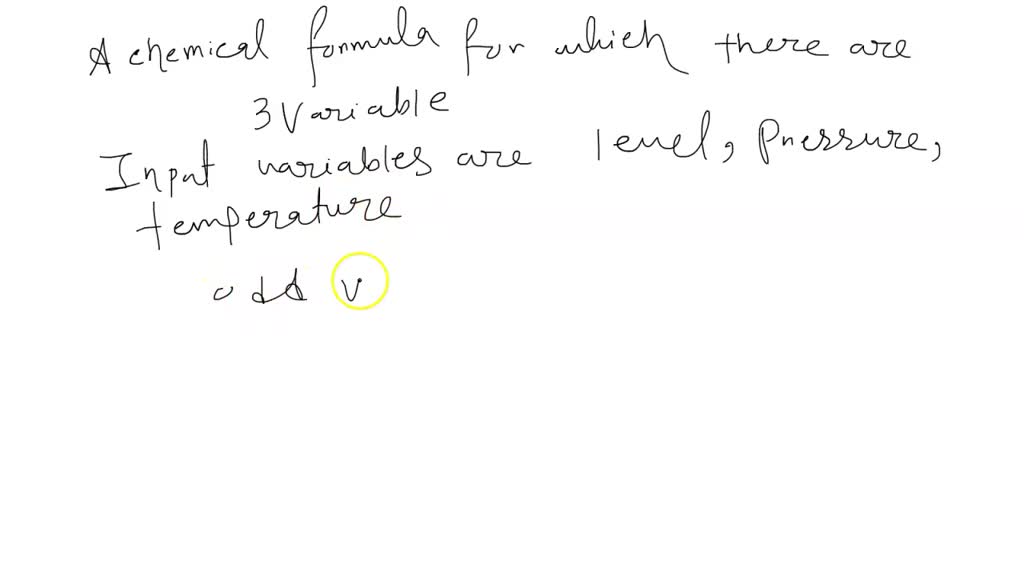 A chemical formula for which there are
3 Variable
Input variables are level, Pressure,
temperature
odd v